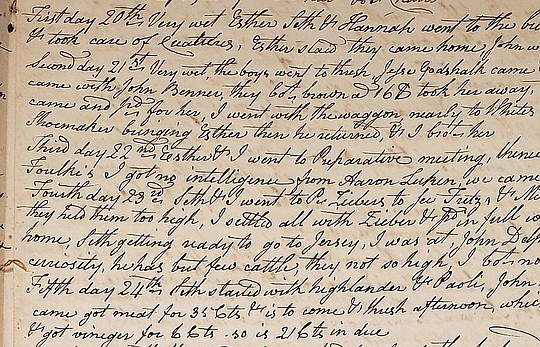 First day 20th Very wet Esther Seth & Hannah went to the bu
& took care of Creatures, Esther staid they came home, John w
Second day 21st Very wet, the boys went to thresh, Jesse Godshalk came
came with John Benner, they bot. brown a 16 D took her away,
came and pd. for her, I went with the waggon, marly to Whites
Shoemaker bringing Esther then he returned, & I bot. her
Third day 22nd Esther & I went to Preparative meeting, thence
Foulke's I got no intelligence from Aaron Luken, we came
Fourth day 23rd Seth & I went to Zeibers to see & Mi
they held them too high, I settled all with Zieber & pd in full w
home, Seth getting ready to go to Jersey, I was at John
curiosity, he has but few cattle, they not so high, I bot. no
Fifth day 24th Seth started with highlander & Paoli, John
came got meat for 35 Cts & is to come & thrush afternoon, whic
& got vineger for 6 Cts. so is 21 Cts in due